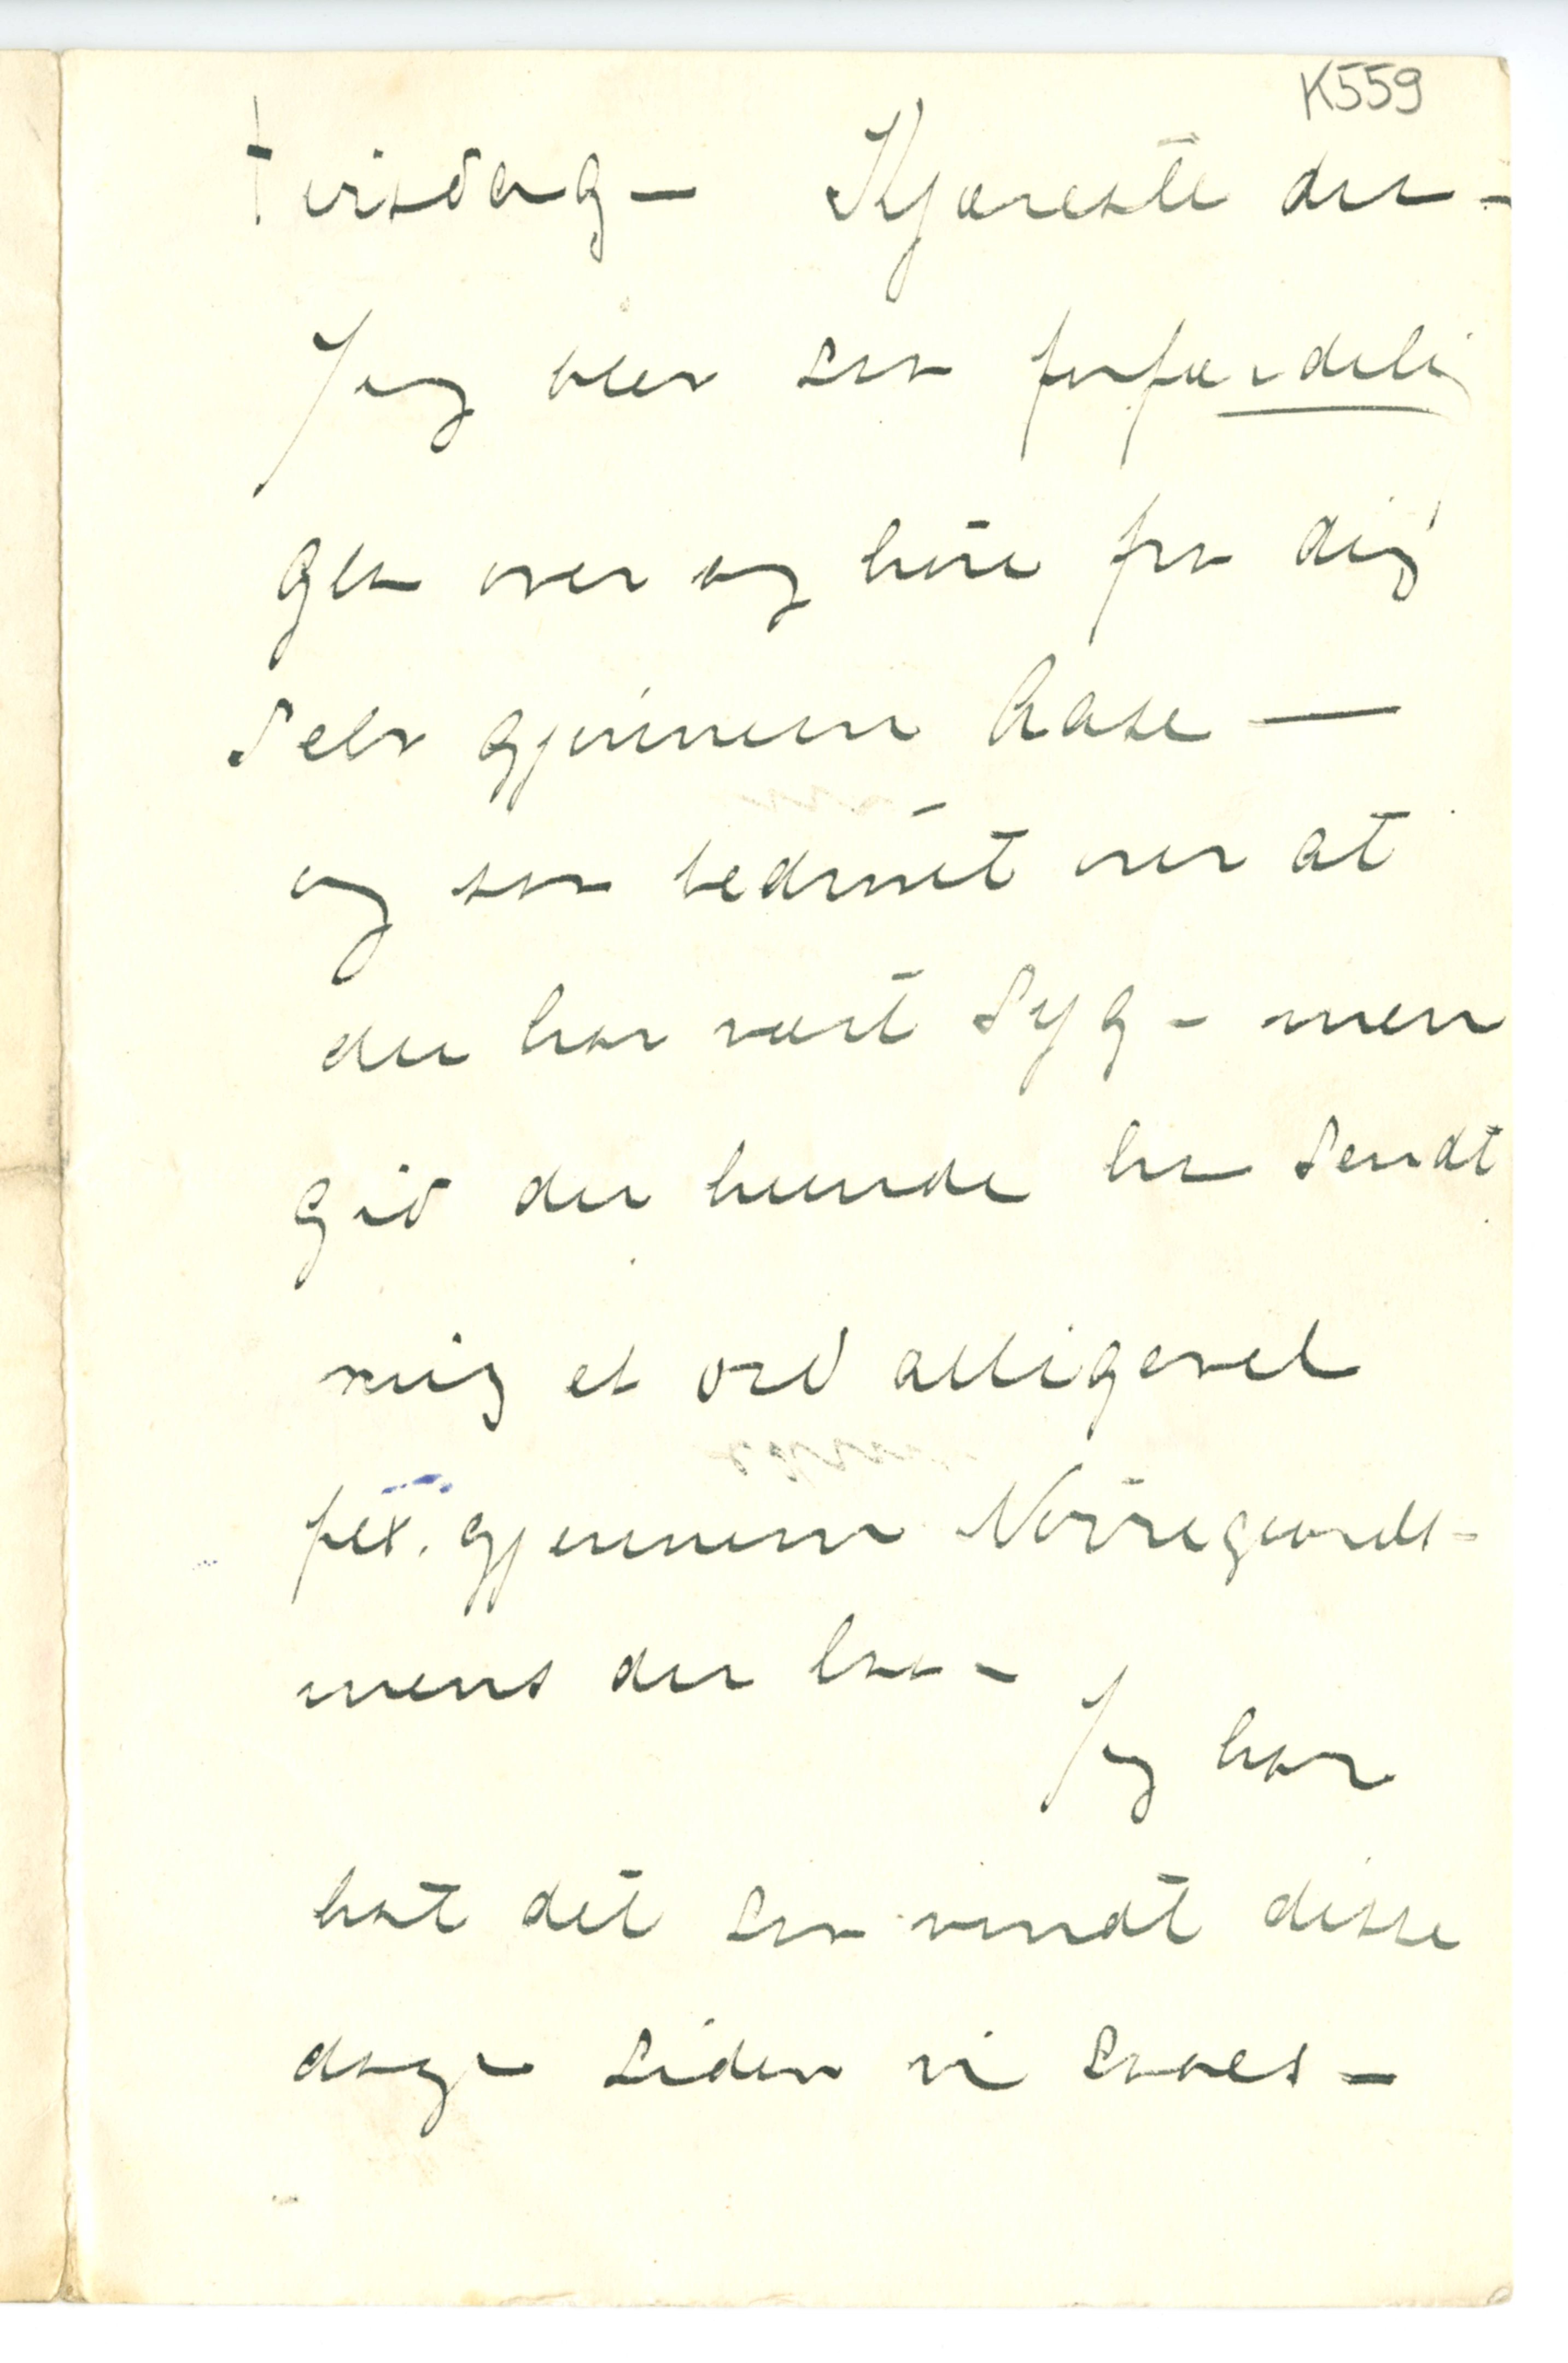 K559
tirsdag – Kjæreste du –
Jeg blev saa forfærdelig
gla over og høre fra dig
selv gjennem Aase –
og saa bedrøvet over at
du har vært syg – men
gid du kunde ha sendt
mig et ord alligevel
fex. gjennem Nørregaards –
mens du laa – Jeg har
hat det saa vondt disse
dage siden vi saaes –